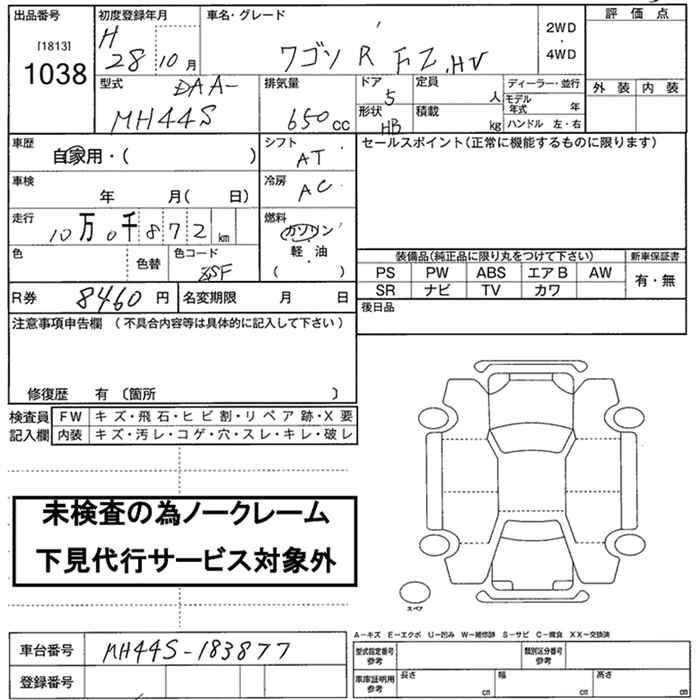 出品番号 初度登録年月 車名・グレード 評 価 点
[1813] 1038
H 28 10 月 ワゴン R FZ.HV 2WD・4WD
型式 排気量 ドア 定員 ディーラー・並行 外 装 内 装
DAA-
MH44S 650 cc 5 人 モデル年式 年
形状 HB 積載 kg ハンドル 左・右
車歴 シフト セールスポイント(正常に機能するものに限ります)
自家用・( ) AT
車検 冷房
年 月( 日) AC
走行 燃料
10 万 0 千 8 7 2 km ガソリン
軽・油
( )
色 色替 色コード 装備品(純正品に限り丸をつけて下さい) 新車保証書
PS PW ABS エアB AW 有・無
SR ナビ TV カワ
R券 8460 円 名変期限 月 日
後日品
注意事項申告欄 (不具合内容等は具体的に記入して下さい)
修復歴 有 〔箇所 〕
検査員 FW キズ・飛石・ヒビ割・リペア跡・X要
記入欄 内装 キズ・汚レ・コゲ・穴・スレ・キレ・破レ
未検査の為ノークレーム
下見代行サービス対象外
スペア
A-キズ E-エクボ U-凹み W-補修跡 S-サビ C-腐食 XX-交換済
車台番号 MH44S-183877
型式指定番号 参考 類別区分番号 参考
登録番号
車庫証明用 参考 長さ cm 幅 cm 高さ cm